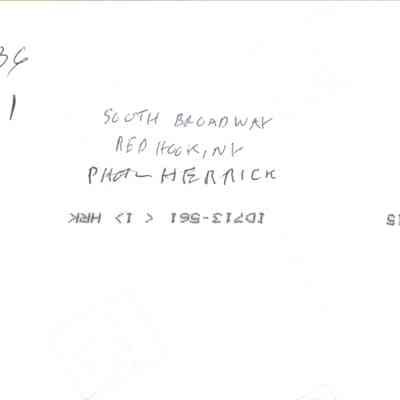 36
1
SOUTH BROADWAY
RED HOOK, NY
HERRICK
ID713-561 < 1> HRK